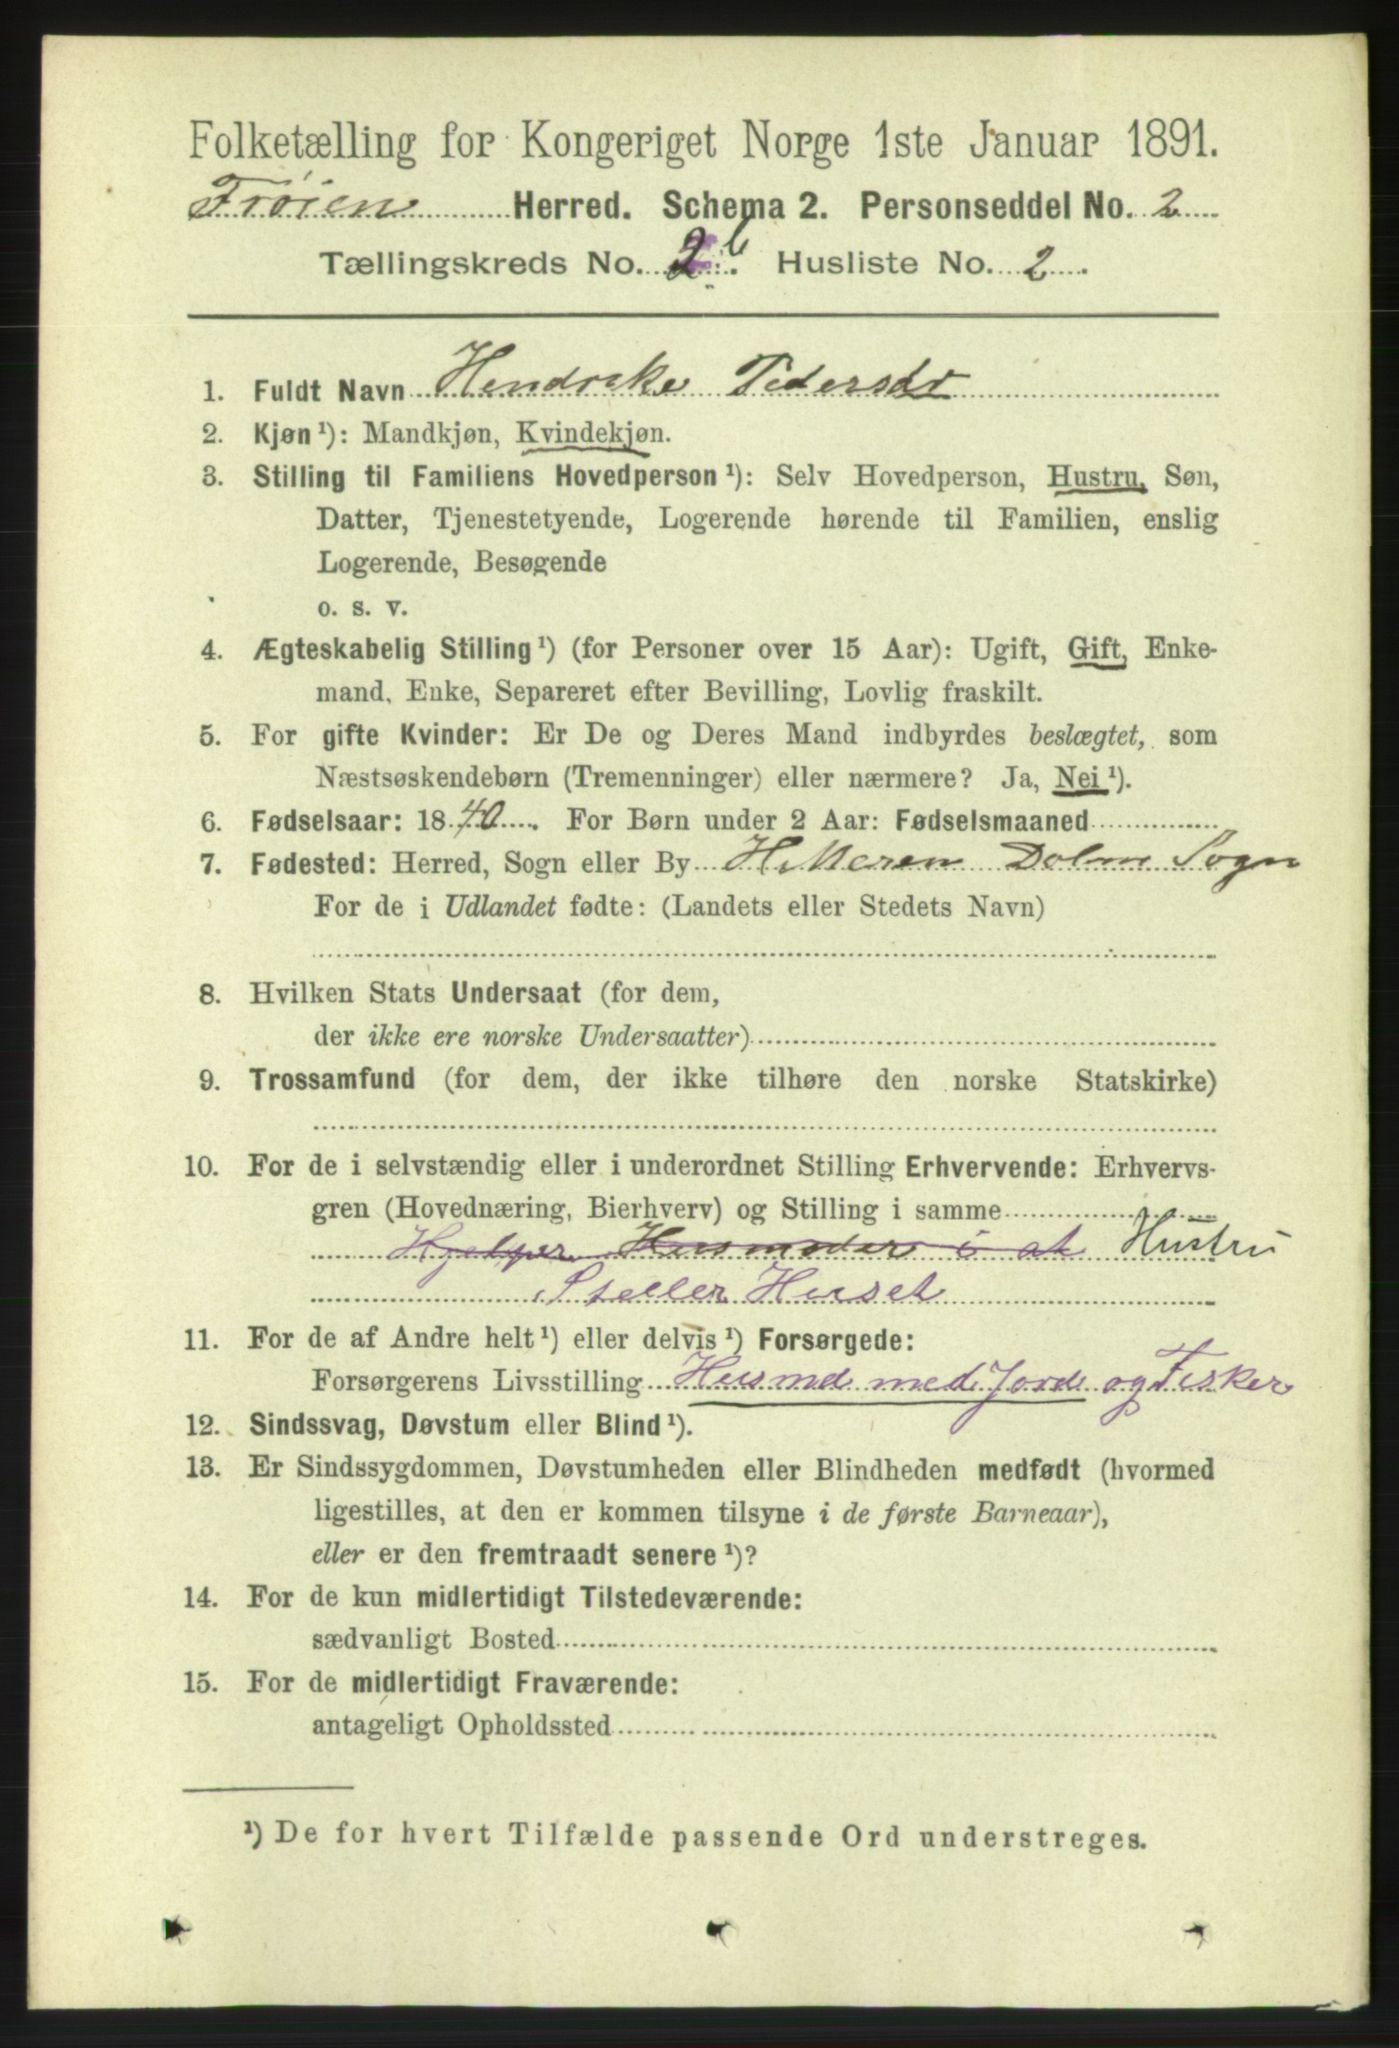 Folketælling for Kongeriget Norge 1ste Januar 1891.
Frøien Herred. Schema 2. Personseddel No. 2
Tællingskreds No. 2 b. Husliste No. 2.
1. Fuldt Navn Hendrike Pedersdr
2. Kjøn ¹): Mandkjøn, Kvindekjøn.
3. Stilling til Familiens Hovedperson ¹): Selv Hovedperson, Hustru, Søn,
Datter, Tjenestetyende, Logerende hørende til Familien, enslig
Logerende, Besøgende
o. s. v.
4. Ægteskabelig Stilling ¹) (for Personer over 15 Aar): Ugift, Gift, Enke-
mand, Enke, Separeret efter Bevilling, Lovlig fraskilt.
5. For gifte Kvinder: Er De og Deres Mand indbyrdes beslægtet, som
Næstsøskendebørn (Tremenninger) eller nærmere? Ja, Nei ¹).
6. Fødselsaar: 1840. For Børn under 2 Aar: Fødselsmaaned
7. Fødested: Herred, Sogn eller By Hitteren Dolm Sogn
For de i Udlandet fødte: (Landets eller Stedets Navn)
8. Hvilken Stats Undersaat (for dem,
der ikke ere norske Undersaatter)
9. Trossamfund (for dem, der ikke tilhøre den norske Statskirke)
10. For de i selvstændig eller i underordnet Stilling Erhvervende: Erhvervs-
gren (Hovednæring, Bierhverv) og Stilling i samme
Hjelper Husmoder i at Hustru
Steller Huset
11. For de af Andre helt ¹) eller delvis ¹) Forsørgede:
Forsørgerens Livsstilling Husmd med Jord og Fisker
12. Sindssvag, Døvstum eller Blind ¹).
13. Er Sindssygdommen, Døvstumheden eller Blindheden medfødt (hvormed
ligestilles, at den er kommen tilsyne i de første Barneaar),
eller er den fremtraadt senere ¹)?
14. For de kun midlertidigt Tilstedeværende:
sædvanligt Bosted
15. For de midlertidigt Fraværende:
antageligt Opholdssted
¹) De for hvert Tilfælde passende Ord understreges.